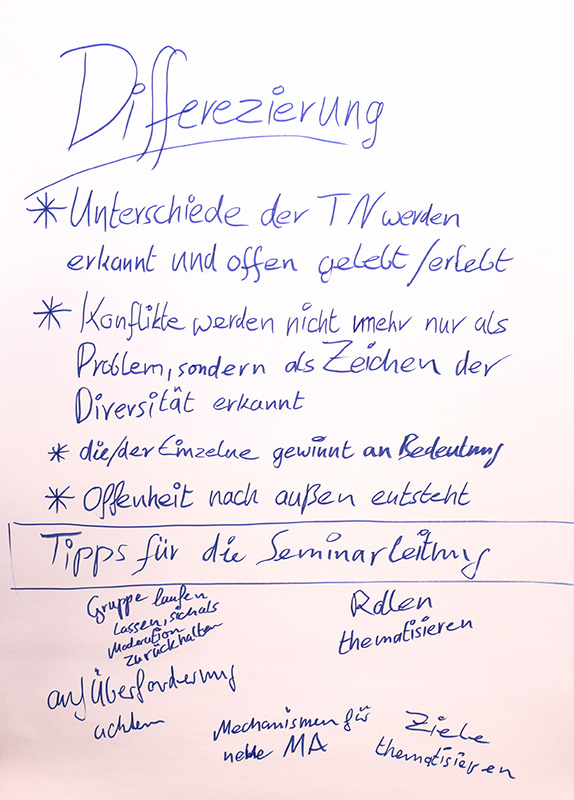 Differezierung
* Unterschiede der TN werden
erkannt und offen gelebt/erlebt
* Konflikte werden nicht mehr nur als
Problem, sondern als Zeichen der
Diversität erkannt
* die/der Einzelne gewinnt an Bedeutung
* Offenheit nach außen entsteht
Tipps für die Seminarleitung
Gruppe laufen
lassen, sich als
Moderation
zurückhalten
Rollen
thematisieren
auf Überforderung
achten
Mechanismen für
neue MA
Ziele
thematisieren